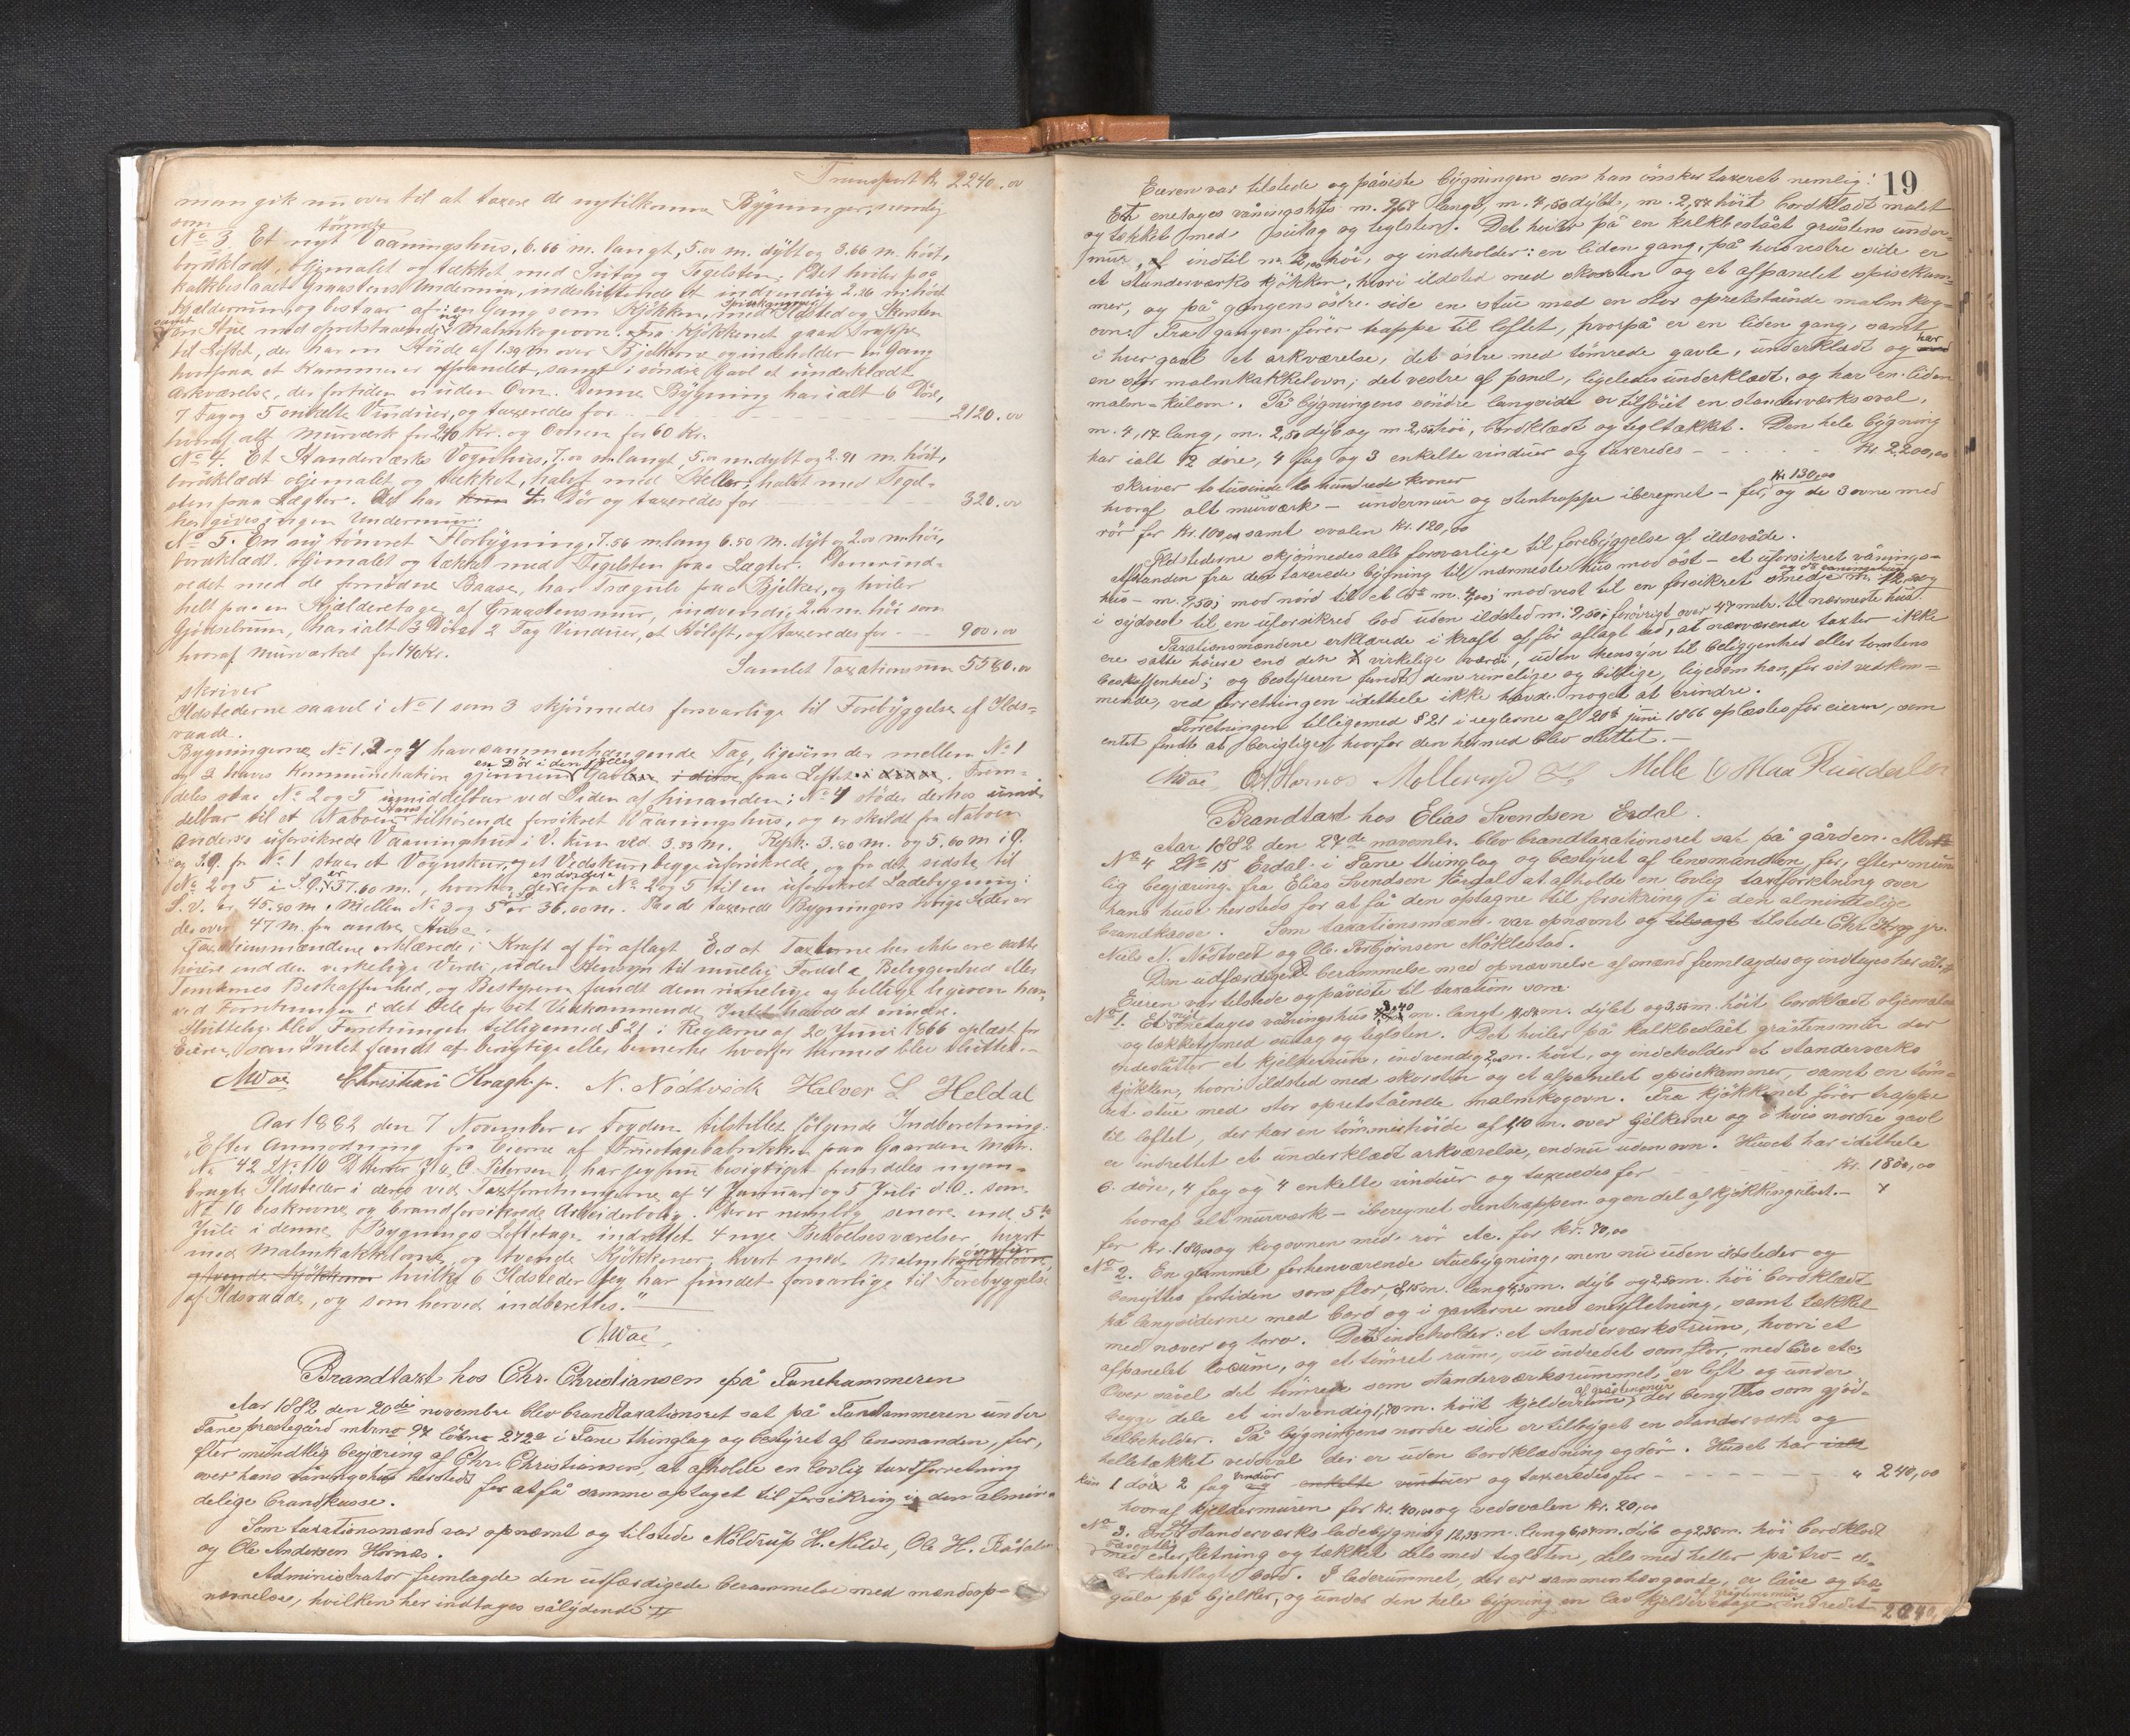 Transport Kr. 2240.00
man gik nu over til at taxere de nytilkomne Bygninger, nemlig
som
No 3. Et nyt tømret Vaaningshus, 6.66 m. langt, 5.00 m. dybt og 3.66 m. høit,
bordklædt, oljemalet og tækket med Sutag og Tegelsten. Det hviler paa
kalkbeslaaet Graastens Undermur, indesluttende et indvendig 2.26 m. høit
Kjælderrum, og bestaar af: en Gang som Kjøkken, med Spiskammer Ildsted og Skorsten
samt en Stue med opretstaaende ny Malmkogeovn. Fra Kjøkkenet gaar Trappe
til Loftet, der har en Høide af 1.39 m over Bjelkerne og indeholder en Gang
hvorfra et Kammer er afpanelet, samt i søndre Gavl et underklædt
Arkværelse, der fortiden er uden Ovn. Denne Bygning har ialt 6 Døre,
7 Fag og 5 enkelte Vinduer, og taxeredes for 2120.00
hvoraf alt Murværk for 240 Kr. og Ovnen for 60 Kr.
No 4. Et Standerværks Vognhus, 7.00 m. langt, 5.00 m. dybt og 2.91 m. høit,
bordklædt oljemalet og tækket, halvt med Heller, halvt med Tegel-
sten paa Lægter. Det har en Dør og taxeredes for 320.00
her gives ingen Undermur.
No 5. En ny tømret Florbygning, 7.56 m. lang 6.50 m. dyb og 2.00 m. høi,
bordklædt. Oljemalet og tækket med Tegelsten paa Lægter. Den er ind-
redet med de fornødne Baase, har Trægulv paa Bjelker, og hviler
helt paa en Kjælderetage af Graastensmur, indvendig 2.00 m. høi som
Gjødselrum, har ialt 3 Døre 2 Fag Vinduer, et Høloft, og taxeredes for 900.00
hvoraf Murværket for 140 Kr.
Samlet Taxationssum 5580.00
skriver
Ildstederne saavel i No 1 som 3 skjønnedes forsvarlige til Forebyggelse af Ilds-
vaade.
Bygningerne No 1, 2 og 4 have sammenhængende Tag, ligesom der mellem No 1
og 2 haves Kommunikation gjennem en Dør i den fælles Gavl fra Loftet. Frem-
deles staar No 2 og 5 umiddelbar ved Siden af hinanden; No 4 støder derhos umid-
delbar til et Naboen Hans tilhørende forsikret Vaaningshus, og er skildt fra Naboen
Anderses uforsikrede Vaaningshus i V. kun ved 3.33 m. Resp. 3.80 m. og 5.60 m i Ø.
og S.Ø. fra No 1 staar et Vognskur, og et Vedskur, begge uforsikrede, og fra det sidste til
No 2 og 5 i S.Ø. er 37.60 m., hvorhos der endvidere fra No 2 og 5 til en uforsikret Ladebygning i
S.V. er 45.80 m. Mellem No 3 og 5 er 36.60 m. Fra de taxerede Bygningers øvrige Sider er
der over 47 m. fra andre Huse.
Taxationsmændene erklærede i Kraft af før aflagt Eed at Taxterne her ikke ere satte
høiere end den virkelige Værdi, uden Hensyn til muelig Fordel af Beliggenhed eller
Tomternes Beskaffenhed, og Bestyreren fandt dem rimelige og billige ligesom han,
ved Forretningen i det Hele for sit Vedkommende Intet havde at erindre.
Sluttelig blev Forretningen tilligemed § 21 i Reglerne af 20 Juni 1866 oplæst for
Eieren, som Intet fandt at berigtige eller bemerke hvorfor hermed blev sluttet.
Christian Kragh jr. N. Nödtvedt Halver L Heldal
Aar 1882 den 7 November er Fogden tilstillet følgende Indberetning:
„Efter Anmodning fra Eierne af Tricotagefabrikken paa Gaarden Matr.
No 42 har jeg besigtiget fremdeles nyan-
bragte Ildsteder i deres ved Taxtforretningerne af 4 Januar og 5 Juli d.A. som
No 10 beskrevne og brandforsikrede Arbeiderbolig. Der er nemlig senere end 5te
Juli i denne Bygnings Loftetage indrettet 4 nye Beboelsesværelser, hvert
med Malmkakkelovn, og tvende Kjøkkener, hvert med Malmkomfur
hvilke 6 Ildsteder jeg har fundet forsvarlige til Forebyggelse
af Ildsvaade, og som herved indberettes."
Brandtaxt hos Chr. Christiansen på Fanehammeren
Aar 1882 den 20de novembr. blev brandtaxationsret sat på Fanehammeren under
Fane prestegård mtrno 97 løbno 272a i Fane thinglag og bestyret af lensmanden, for,
efter mundtlig begjæring af Chr. Christiansen, at afholde en lovlig taxtforretning
over hans våningshus hersteds for at få samme optaget til forsikring i den almin-
delige brandkasse.
Som taxationsmænd var opnæmt og tilstede Moldrup H. Milde, Ole H. Rådalen
og Ole Andersen Hornæs.
Administrator fremlagde den udfærdigede berammelse med mændsop-
nævnelse, hvilken her indtages sålydende
19
Eieren var tilstede og påviste bygningen som han ønsker taxeret nemlig:
Et enetages våningshus m. 9,68 langt, m. 7,50 dybt, m. 2,84 høit bordklædt malet
og tækket med sutag og teglsten. Det hviler på en kalkbeslået gråstens under-
mur, af indtil m. 2,00 høi, og indeholder: en liden gang, på hvis vestre side er
et standerværks kjøkken, hvori ildsted med skorsten og et afpanelet spisekam-
mer, og på gangens østre side en stue med en stor opretstående malmkog-
ovn. Fra gangen fører trappe til loftet, hvorpå er en liden gang, samt
i hver gavl et arkværelse, det østre med tømrede gavle, underklædt og har
en stor malmkakkelovn; det vestre af panel, ligeledes underklædt, og har en liden
malm-kulovn. På bygningens søndre langside er tilføiet en standerværkssval,
m. 4,17 lang, m. 2,50 dyb og m. 2,50 høi, bordklædt og tegltækket. Den hele bygning
har ialt 12 døre, 4 fag og 3 enkelte vinduer og taxeredes Kr. 2,200,00
skriver to tusinde to hundrede kroner
hvoraf alt murværk – undermur og stentrappe iberegnet – for Kr. 130,00 og de 3 ovne med
rør for Kr. 100,00 samt svalen Kr. 120,00
Ildstederne skjønnedes alle forsvarlige til forebyggelse af ildsvåde.
Afstanden fra den taxerede bygning til nærmeste hus mod øst – et uforsikret vånings-
hus – m. 9,50; mod nord til et do m. 4,00; mod vest til en forsikret smedje og et vaaningshus m. 12,50 og
i sydvest til en uforsikred bod uden ildsted m. 9,50; forøvrigt over 47 metr. til nærmeste hus.
Taxationsmændene erklærede i kraft af før aflagt ed, at nærværende taxter ikke
ere satte høiere end den virkelige værdi, uden hensyn til beliggenhed eller tomtens
beskaffenhed; og bestyreren fandt dem rimelige og billige, ligesom han, for sit vedkom-
mende, ved forretningen idethele ikke havde noget at erindre.
Forretningen tilligemed § 21 i reglerne af 20de juni 1866 oplæstes for eieren, som
intet fandt at berigtige, hvorfor den hermed blev sluttet.
Brandtaxt hos Elias Svendsen Erdal.
Aar 1882 den 27de novembr. blev brandtaxationsret sat på gården
No 4 LNo 15 Erdal i Fane thinglag og bestyret af lensmanden, for, efter mundt-
lig begjæring fra Elias Svendsen Erdal at afholde en lovlig taxtforretning over
hans huse hersteds for at få den optagne til forsikring i den almindelige
brandkasse. Som taxationsmænd var opnævnt og tilstede Chr. Krag jr.
Niels N. Nödtvedt og Ole Torbjørnsen Møklestad.
Den udfærdigede berammelse med opnævnelse af mænd fremlagdes og indtages her
Eieren var tilstede og påviste til taxation som
No 1. Et nyt enetages våningshus 8,40 m. langt m. dybt og 3,50 m. høit bordklædt oljemalet
og tækket med sutag og teglsten. Det hviler på kalkbeslået gråstensmur der
indeslutter et kjelderrum, indvendig 2,00 m. høit, og indeholder et standerværks
kjøkken, hvori ildsted med skorsten og et afpanelet spisekammer, samt en tøm-
ret stue med stor opretstående malmkogovn. Fra kjøkkenet fører trappe
til loftet, der har en tømmerhøide af 1,10 m. over bjelkerne og i hvis nordre gavl
er indrettet et underklædt arkværelse, endnu uden ovn. Huset har idethele
6 døre, 4 fag og 4 enkelte vinduer og taxeredes for Kr. 1800,00
hvoraf alt murværk – iberegnet stentrappen og en del af kjøkkengulvet –
for Kr. 180,00 og kogovnen med rør etc. for Kr. 70,00
No 2. En gammel forhenværende stuebygning, men nu uden ildsteder og
benyttes fortiden som flor, 8,15 m. lang m. dyb og 2,50 m. høi bordklædt
på langsiderne med bord og i gavlerne med enerfletning, samt tækket
med næver og torv. Den indeholder: et standerværks rum, hvori et
afpanelet locum, og et tømret rum, nu indredet som flor, med båse etc.
Over såvel det tømrede som standerværksrummet, er loft og under
begge dele et indvendig 1,70 m. høit kjelderrum af gråstensmur, der benyttes som gjød-
selbeholder. På bygningens nordre side er tilbygget en standerværks og
helletækket vedsval der er uden bordklædning og dør. Huset har
kun 1 dør 2 fag vinduer og taxeredes for " 240,00
hvoraf kjeldermuren for Kr. 40,00 og vedsvalen Kr. 20,00
No 3. En standerværks ladebygning 12,33 m. lang m. dyb og 2,30 m. høi bordklædt
væsentlig med enerfletning og tækket dels med teglsten, dels med heller på tro
kantlagt bord. I laderummet, der er sammenhængende, er låve og træ-
gulv på bjelker, og under den hele bygning en lav kjelderetage af gråstensmur indredet
2040,